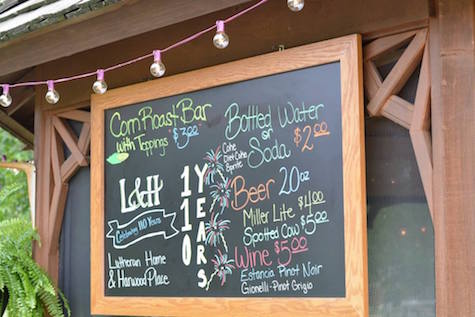 Corn Roast Bar
with Toppings $3.00
L&H
Celebrating 110 Years
Lutheran Home
& Harwood Place
110
YEARS
Bottled Water
or
Soda $2.00
Coke
Diet Coke
Sprite
Beer 20oz
Miller Lite $4.00
Spotted Cow $5.00
Wine $5.00
Estancia Pinot Noir
Gionelli-Pinot Grigio